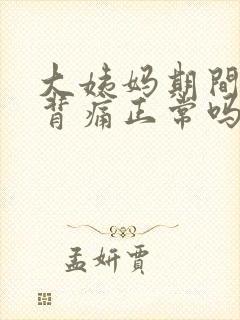 大姨妈期間
背痛正常吗
孟妍賈